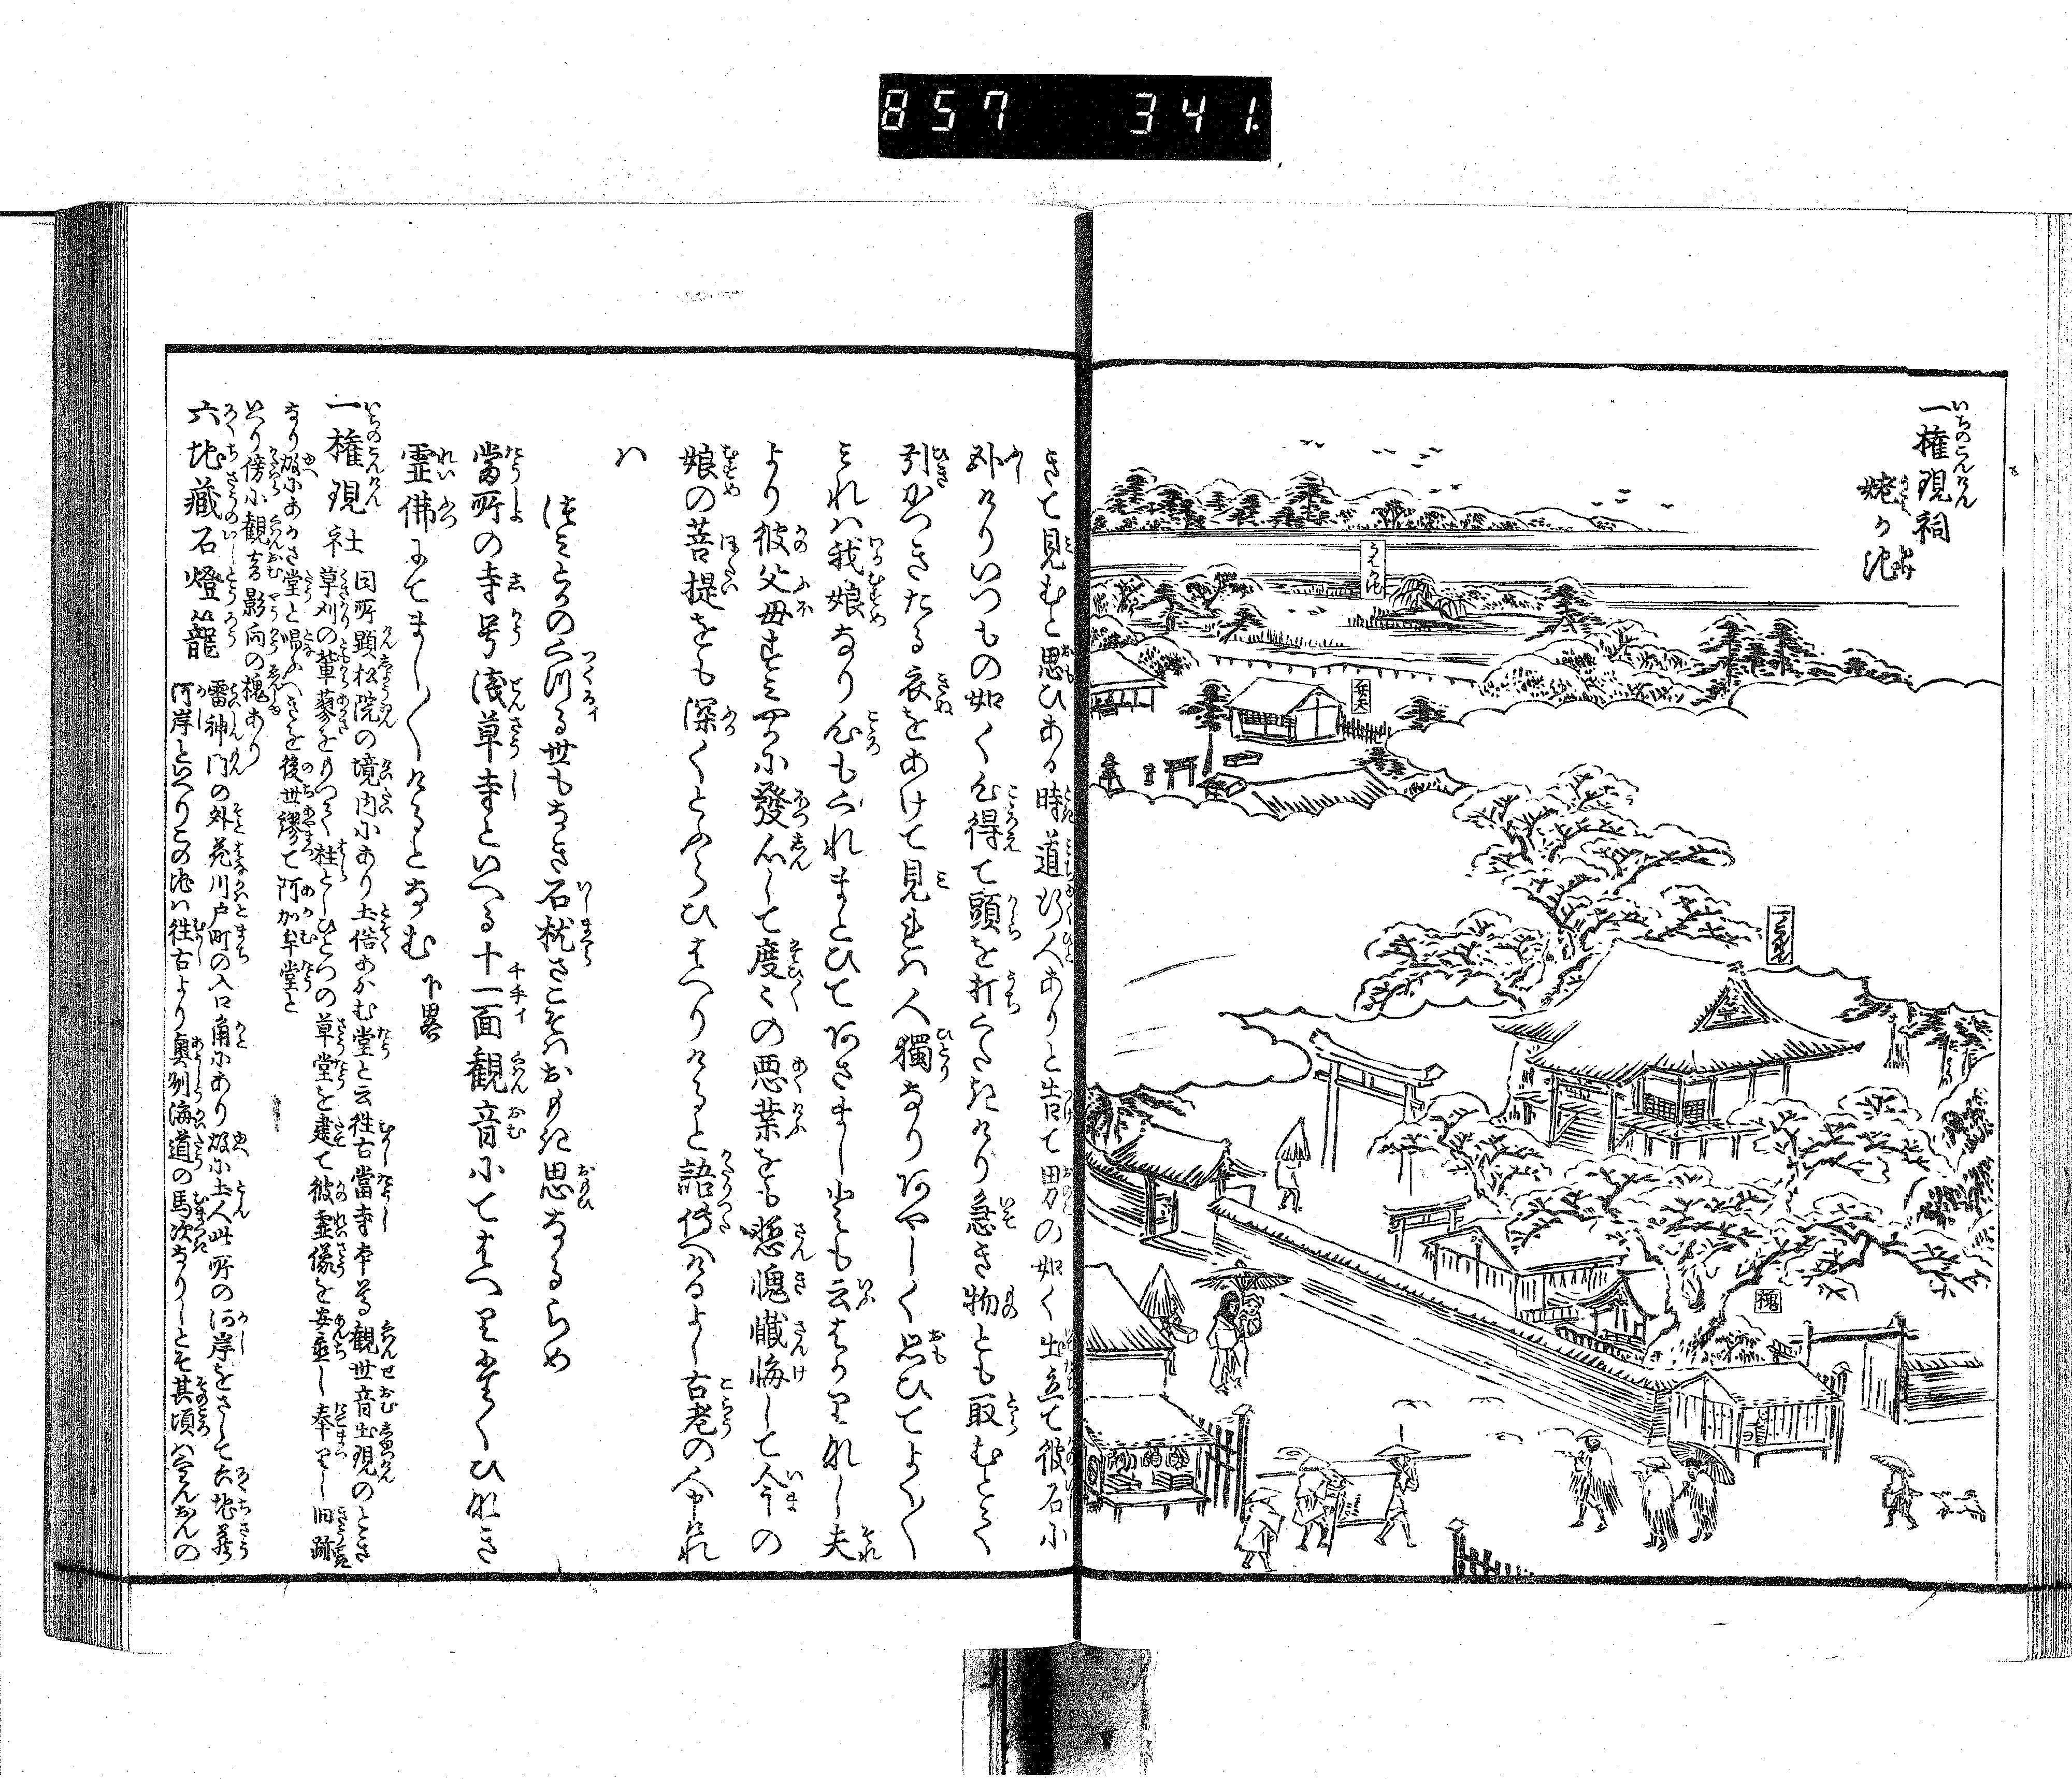 857 341.
一権現祠
姥か池
うばが池
弁天
一ごんげん
槐
きて見むと思ひある時道行人ありと告て男の如く出立て彼石小
外けりいつもの如く心得て頭を打くたきけり急き物とも取むとて
引かつきたる衣をあけて見れは人獨なりあやしく思ひてよく〳〵
みれは我娘なり心もくれまとひてあさましとも云はかりなし夫
より彼父母すみやかに發心して度〻の悪業をも慙愧懺悔して今の
娘の菩提をも深くとふらひはへりけると語傳へけるよし古老の人申けれ
は
つみとかのくつる世もなき石枕さこそはおもき思なるらめ
當所の寺号淺草寺といへる十一面観音にてはへりたくひなき
霊佛にてまし〳〵けるとなむ 下畧
一権現社 同所顕松院の境内にあり土俗あかむ堂と云往古當寺本尊観世音出現のとき
草刈の輩藜をもつて柱としひとつの草堂を建て彼霊像を安置し奉りし旧跡
なり故にあかさ堂と唱ふへきを後世謬て阿加牟堂と
いへり傍に観音影向の槐あり
六地藏石燈籠 雷神門の外花川戸町の入口角にあり故に土人此所の河岸をさして六地蔵
河岸といへりこの地は往古より奥州海道の馬次なりしとそ其頃は